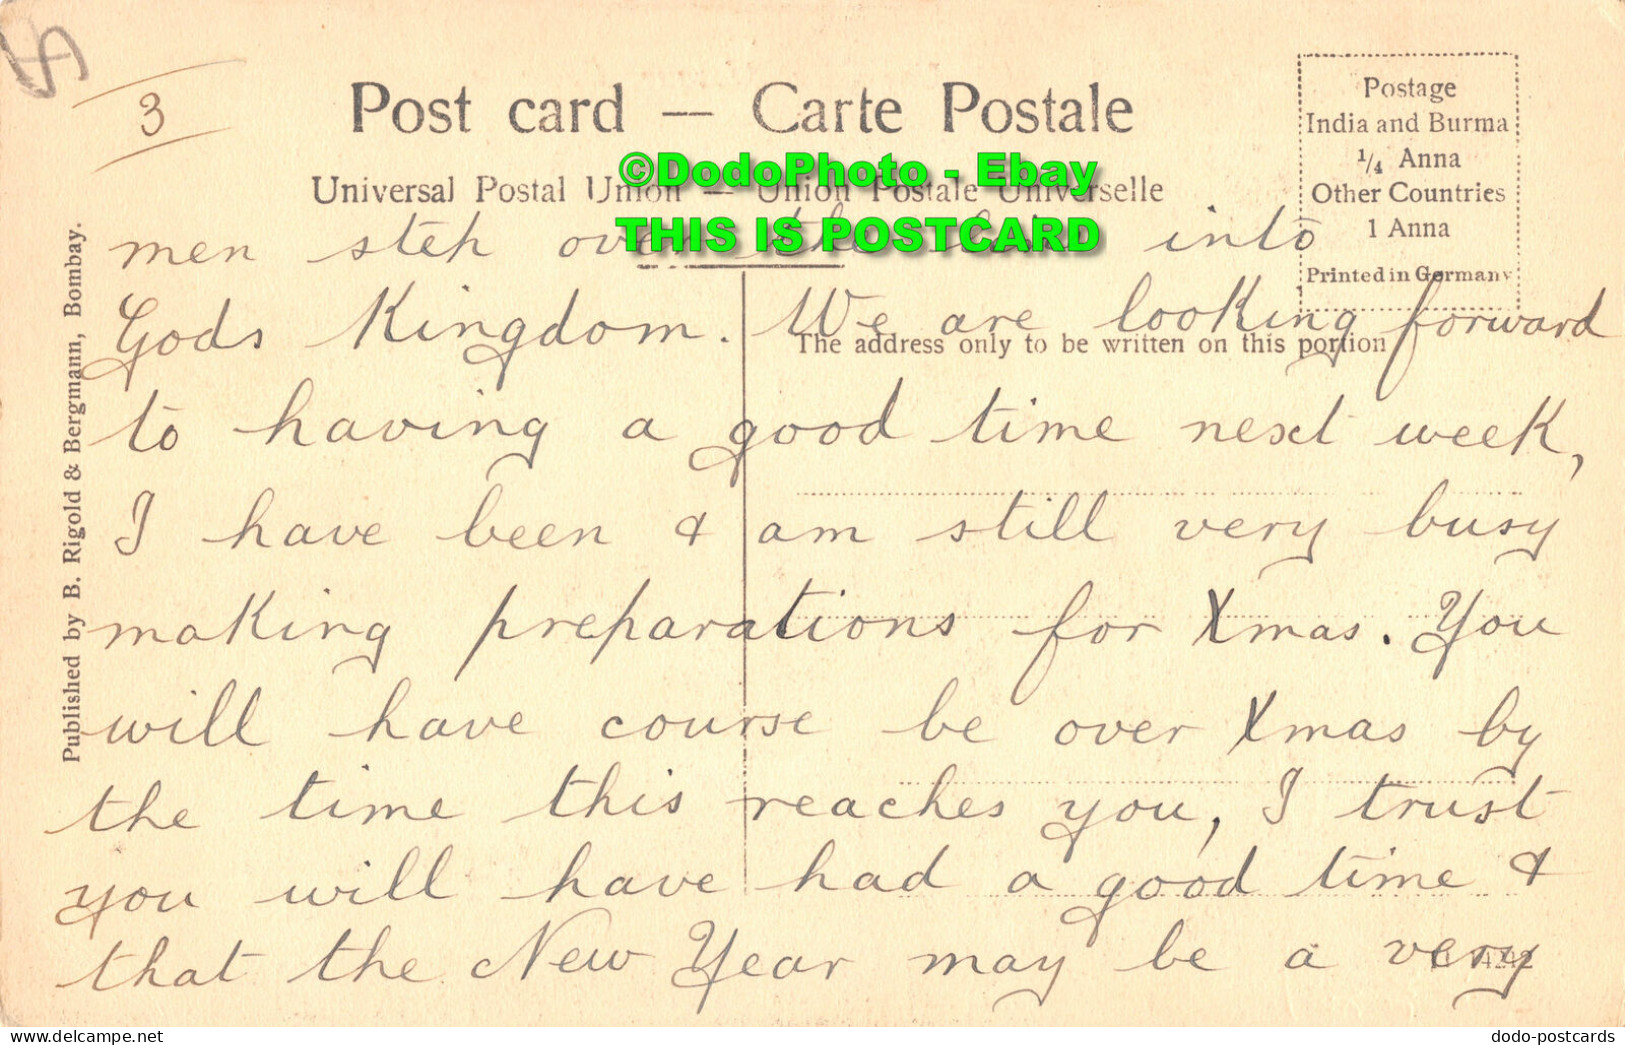 3
Post card — Carte Postale
Universal Postal Union — Union Postale Universelle
©DodoPhoto - Ebay
THIS IS POSTCARD
Postage
India and Burma
1/4 Anna
Other Countries
1 Anna
Printed in Germany
The address only to be written on this portion
Published by B. Rigold & Bergmann, Bombay.
men step over the into
Gods Kingdom. We are looking forward
to having a good time next week,
I have been & am still very busy
making preparations for Xmas. You
will have course be over Xmas by
the time this reaches you, I trust
you will have had a good time &
that the New Year may be a very
delcampe.net
dodo-postcards